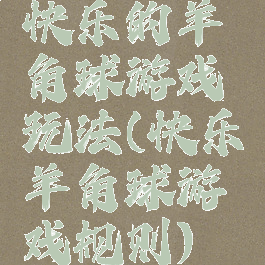 快乐的羊
角球游戏
玩法(快乐
羊角球游
戏规则)